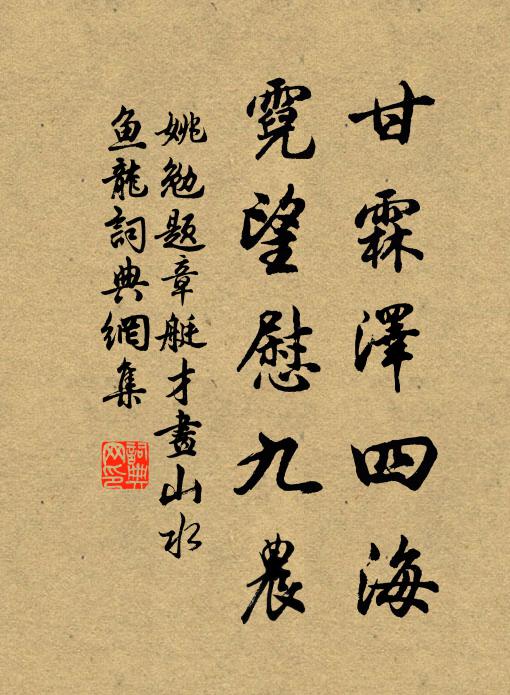 甘霖澤四海
霓望慰九農
姚勉題章艇才畫山水
魚龍詞典網集
詞典網印